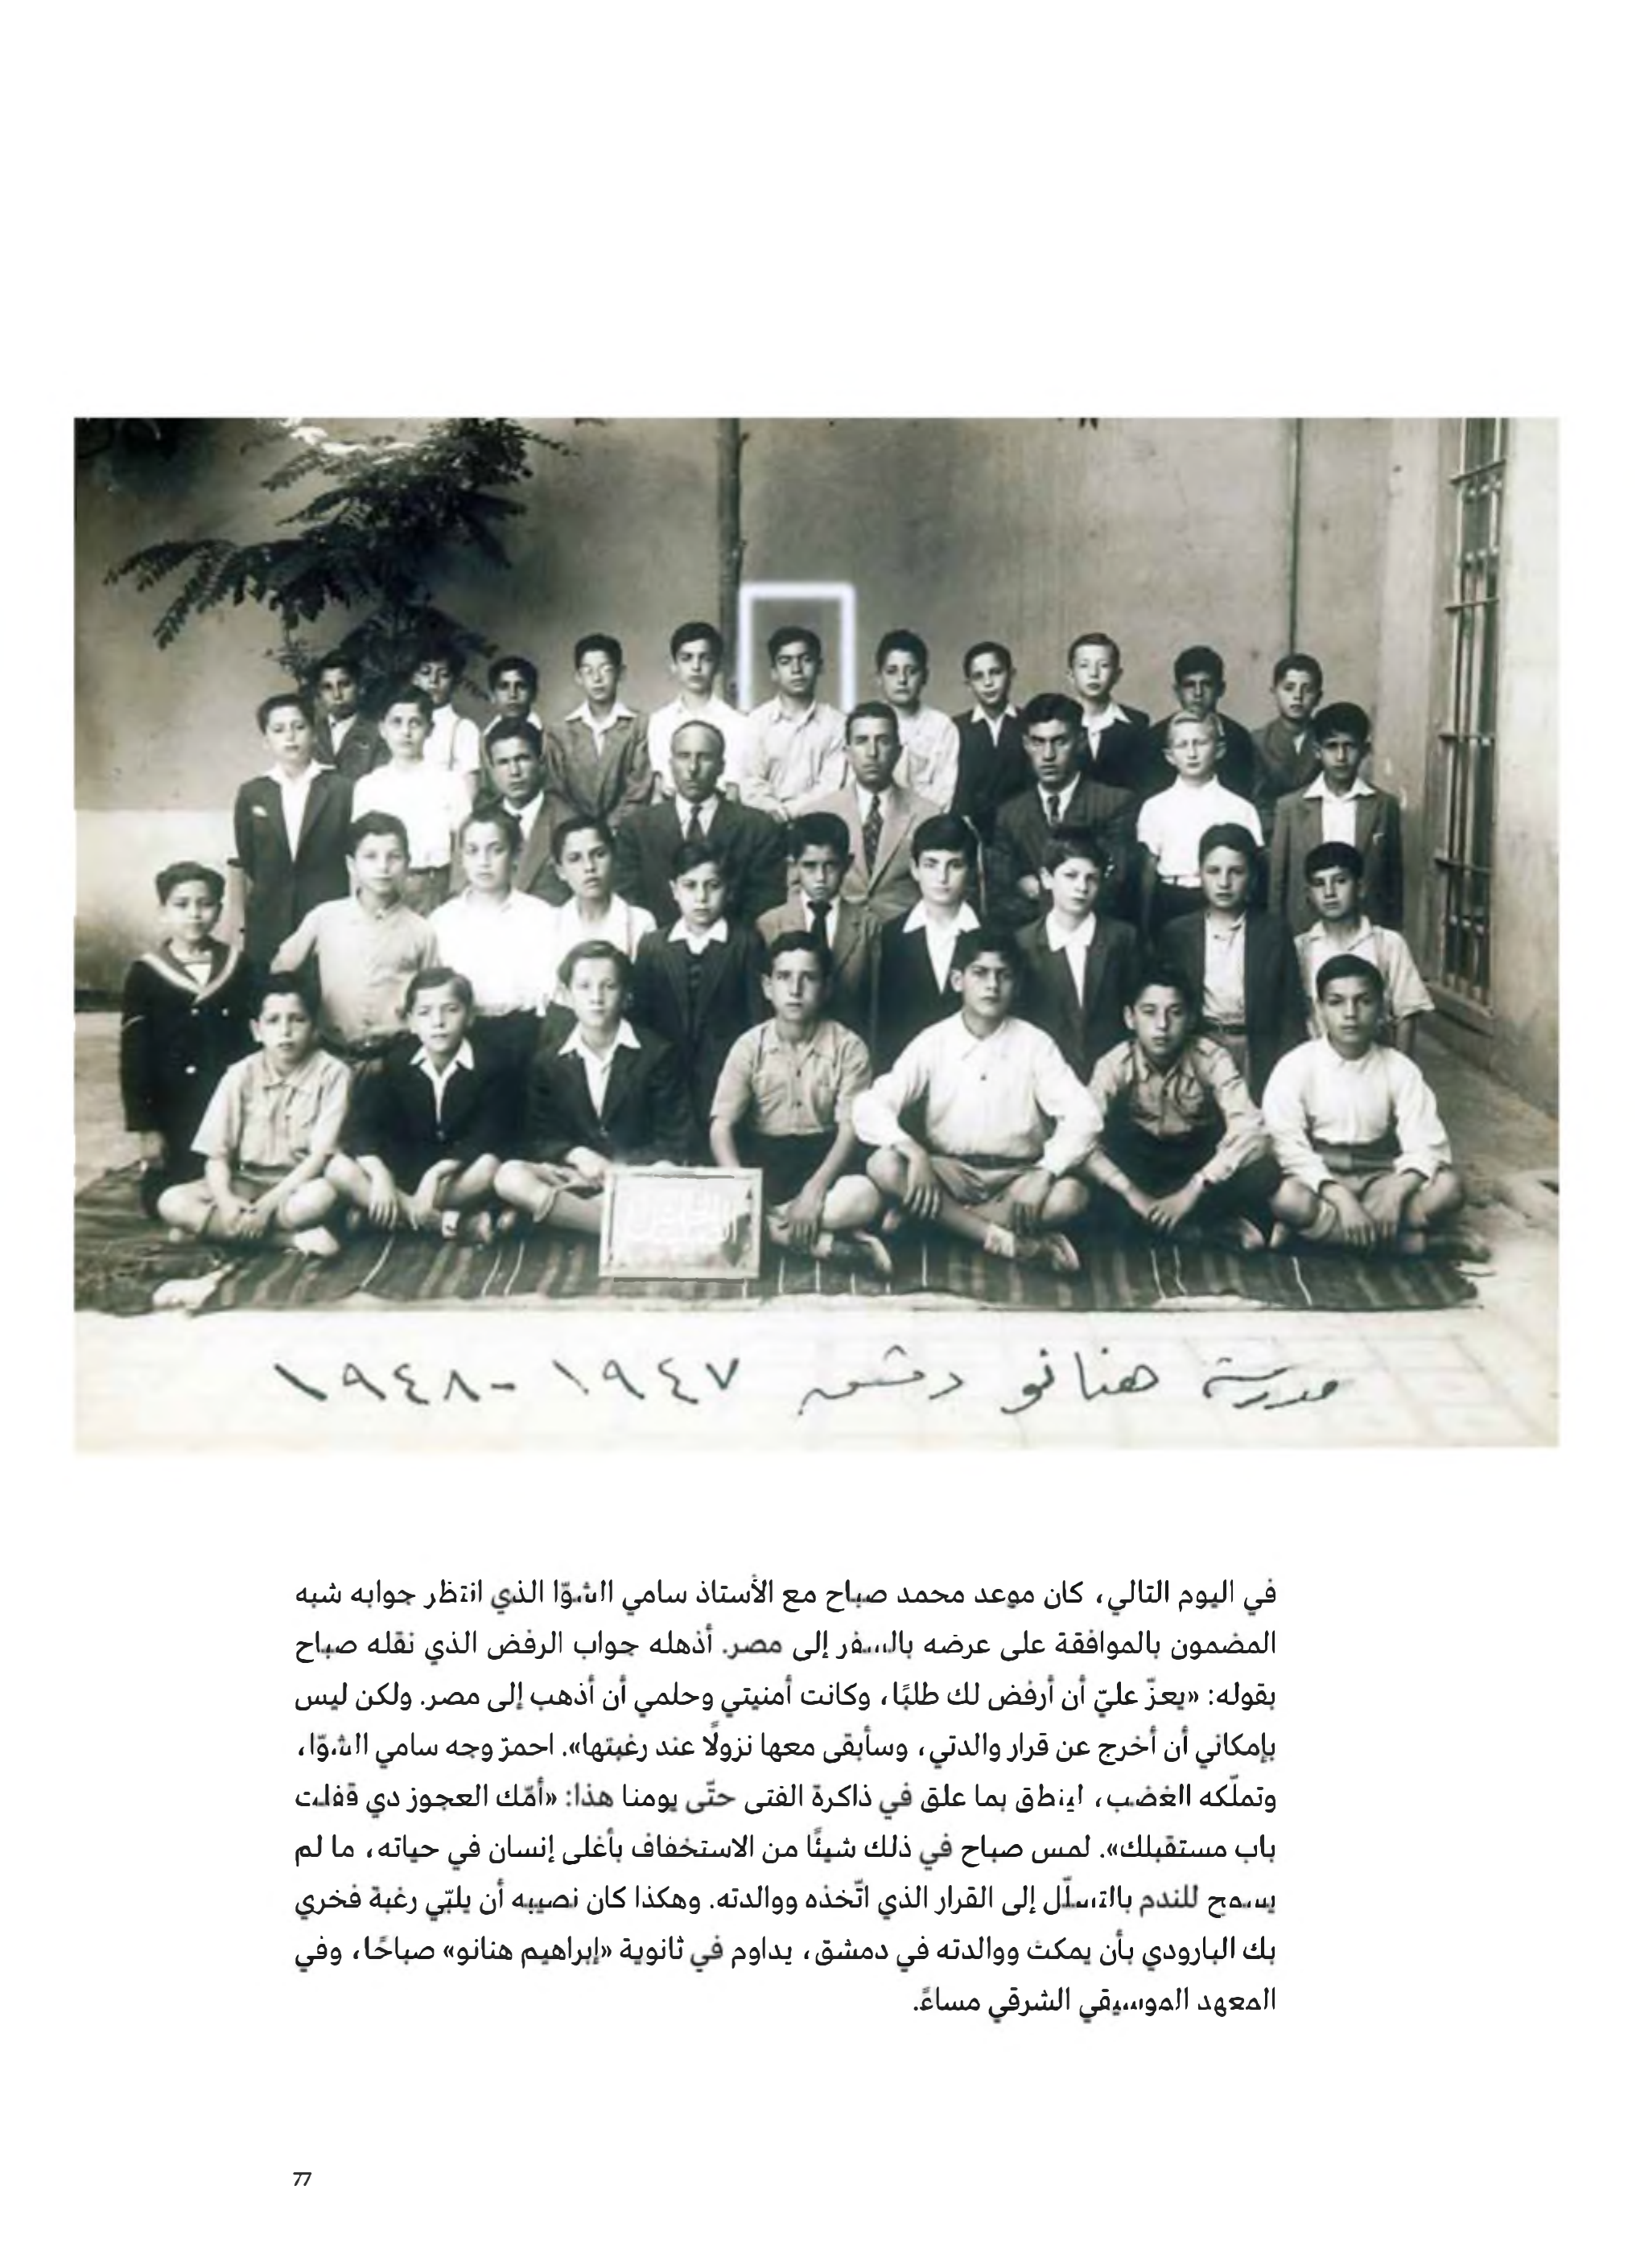 مدرسة هنانو دمشق ١٩٤٧ - ١٩٤٨
في اليوم التالي، كان موعد محمد صباح مع الأستاذ سامي الشوّا الذي انتظر جوابه شبه
المضمون بالموافقة على عرضه بالسفر إلى مصر. أذهله جواب الرفض الذي نقله صباح
بقوله: «يعزّ عليّ أن أرفض لك طلبًا، وكانت أمنيتي وحلمي أن أذهب إلى مصر. ولكن ليس
بإمكاني أن أخرج عن قرار والدتي، وسأبقى معها نزولًا عند رغبتها». احمرّ وجه سامي الشوّا،
وتملّكه الغضب، لينطق بما علق في ذاكرة الفتى حتّى يومنا هذا: «أمّك العجوز دي قفلت
باب مستقبلك». لمس صباح في ذلك شيئًا من الاستخفاف بأغلى إنسان في حياته، ما لم
يسمح للندم بالتسلّل إلى القرار الذي اتّخذه ووالدته. وهكذا كان نصيبه أن يلبّي رغبة فخري
بك البارودي بأن يمكث ووالدته في دمشق، يداوم في ثانوية «إبراهيم هنانو» صباحًا، وفي
المعهد الموسيقي الشرقي مساءً.
77